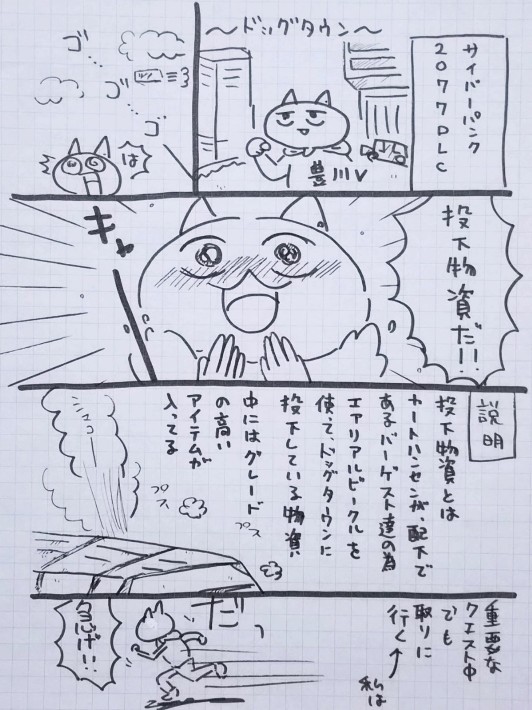 サイバーパンク
2077DLC
～ドッグタウン～
豊川V
ゴ…
ゴ…
ゴ
は
投下物資だ!!
キャ
説明
投下物資とは
カートハンセンが、配下で
あるバーゲスト達の為
エアリアルビークルを
使って、ドッグタウンに
投下している物資
中にはグレード
の高い
アイテムが
入ってる
プス
プス
重要な
クエスト中
でも
取りに
行く
私は
だっ
急げ!!